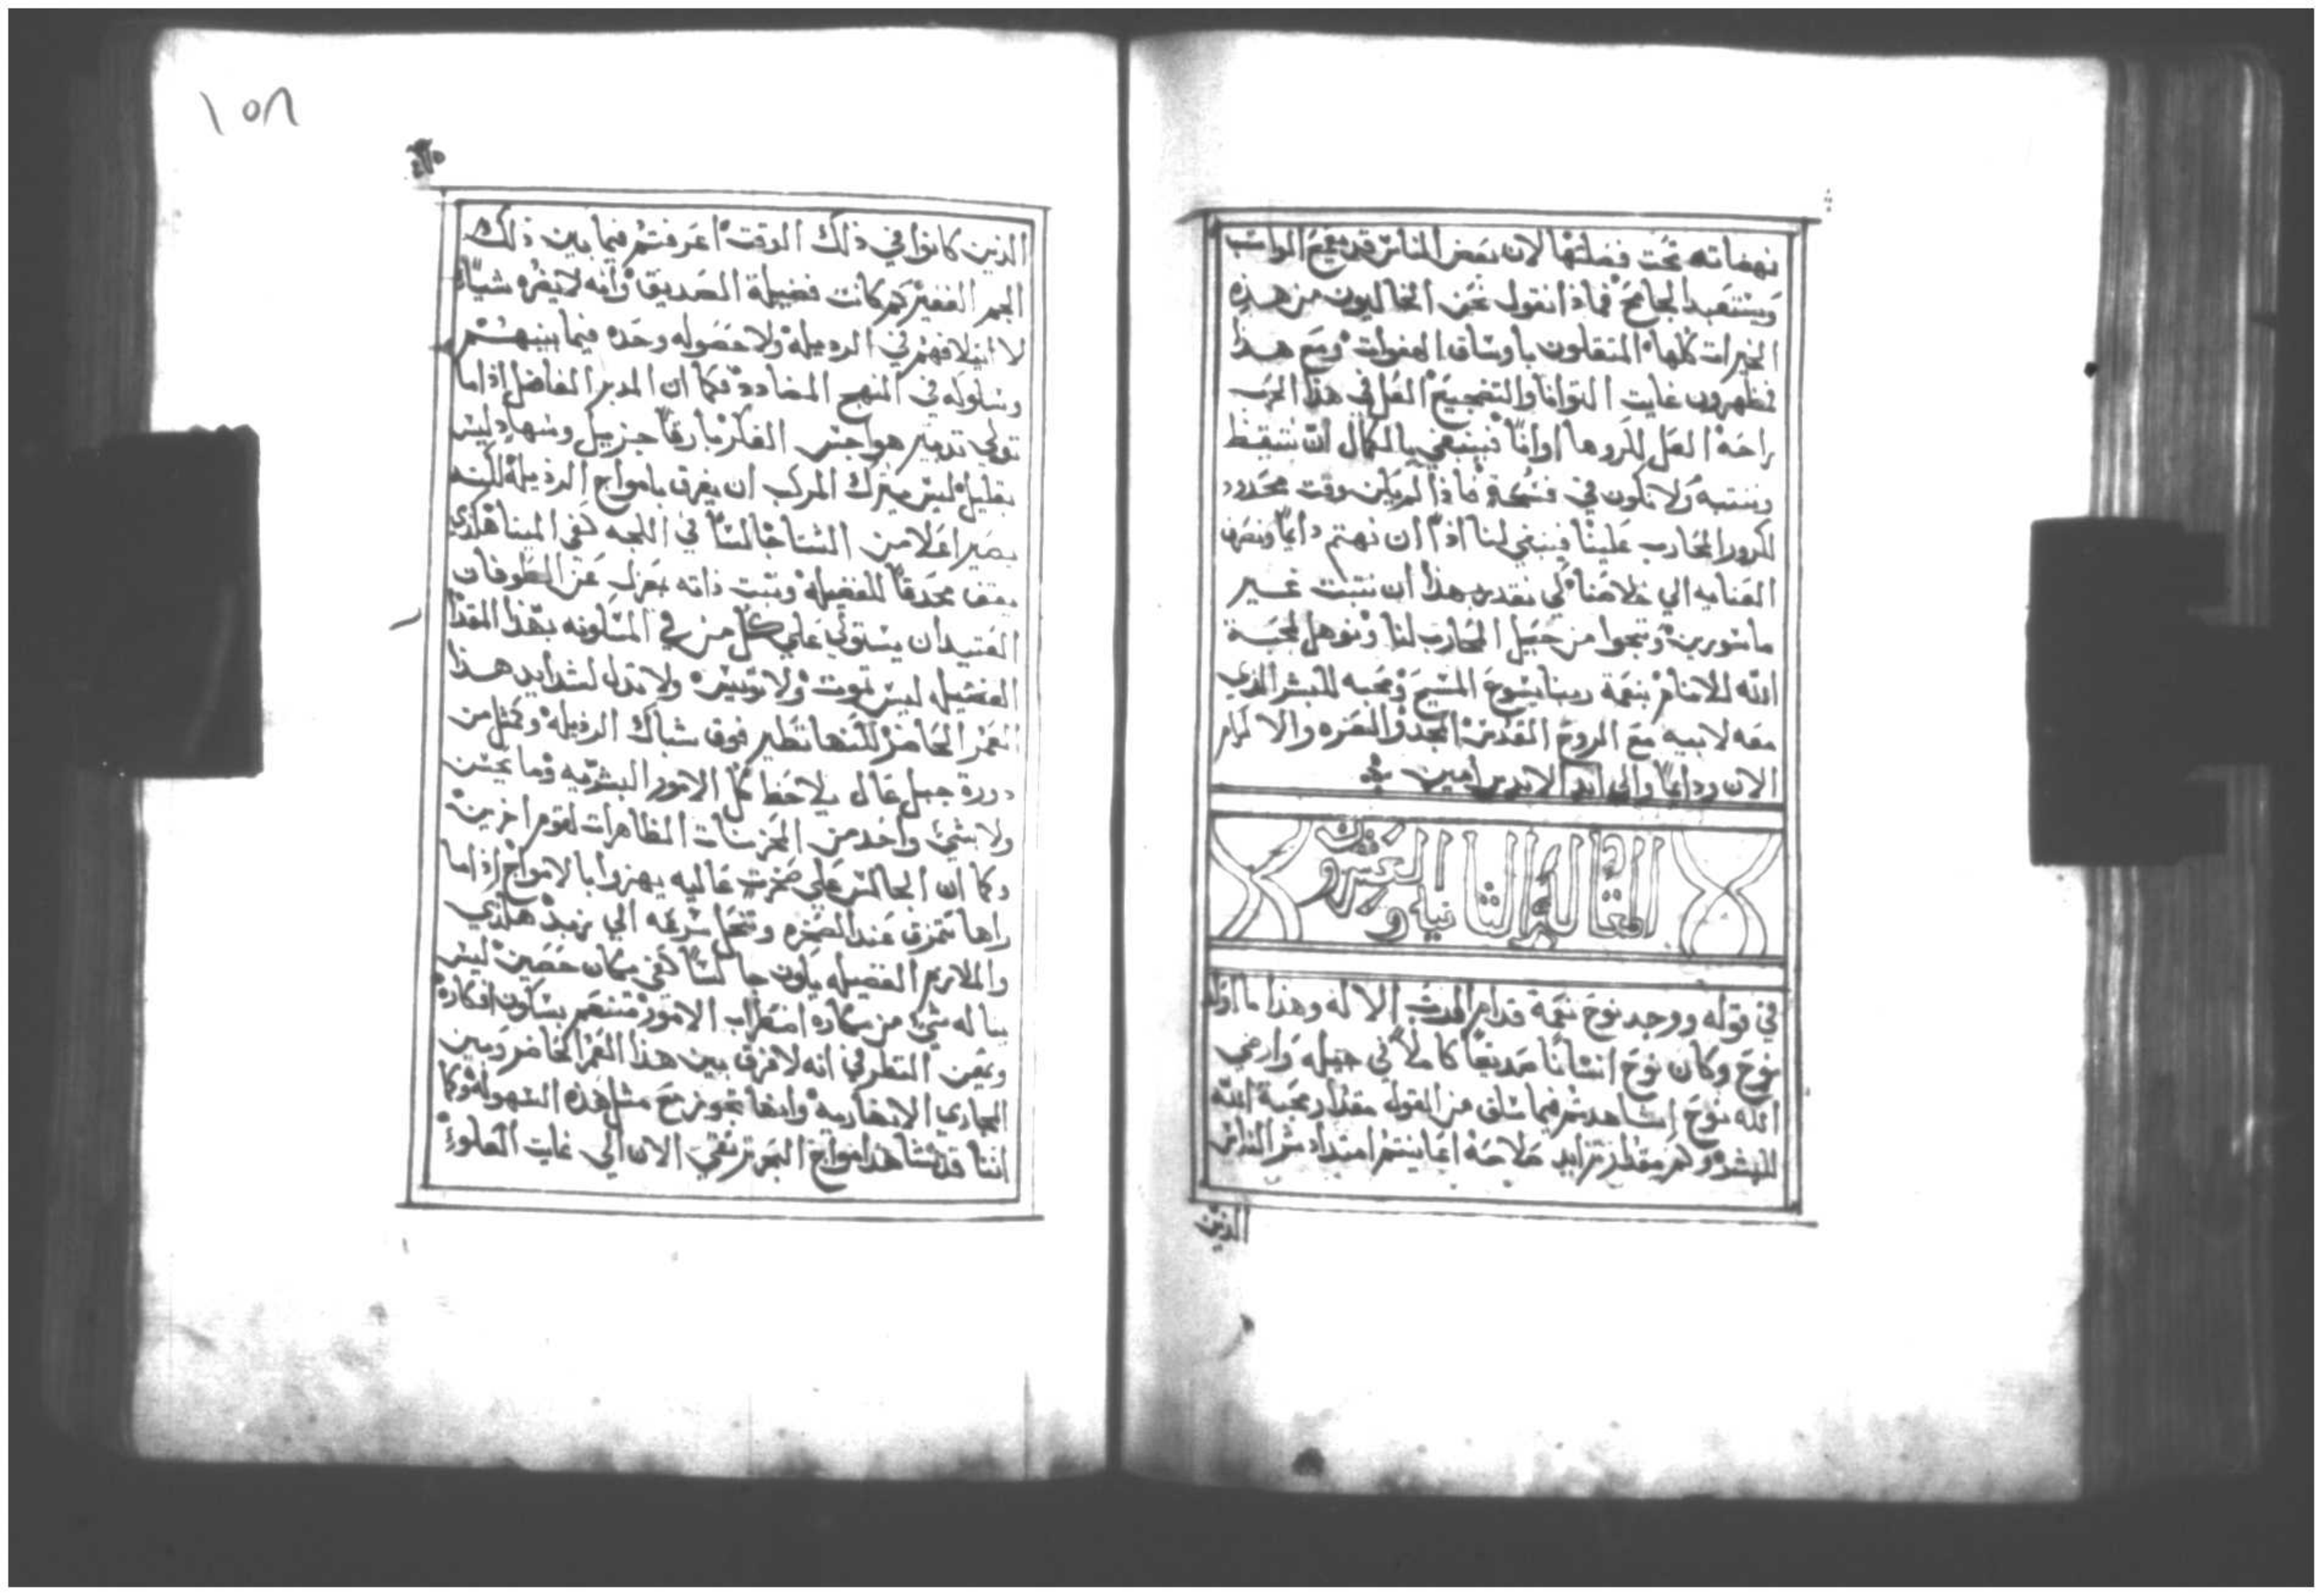 نهضاته تحت فضلتها لان بعض الناس قد يقمع الواثب
ويستعبد الجامح فماذا نقول نحن الخاليون من هذه
الخيرات كلها المثقلون باوساق الهفوات ومع هذا
فنظهرون غايت التوانا والتضجيع العل في هذا الحرب
راحه العل لكروها اوانًا فينبغي بالكمال ان نتيقظ
وننتبه ولا نكون في فسحة فاذا لم يكن وقت محدود
لكرور المحارب علينا فينبغي لنا اذًا ان نهتم دايمًا ونصرف
العنايه الي خلاصنا لكي نقدر بهذا ان نثبت غير
ماسورين وننجوا من حيل المحارب لنا ونوهل لمحبة
الله للانام بنعمة ربنا يسوع المسيح ومحبه للبشر الذي
معه لابيه مع الروح القدس المجد والعزه والاكرام
الان ودايمًا والي ابد الابدين امين
المقالة الثانيه والعشرون
في قوله ووجد نوح نعمة قدام الرب الاله وهذا ما اولد
نوح وكان نوح انسانًا صديقًا كاملاً في جيله وارضي
الله نوح اشاهدتم فيما سلف من القول مقدار محبة الله
للبشر وكم مقدار تزايد طلاحه اعاينتم امتداد شر الناس
الذين
١٥٨
الذين كانوا في ذلك الوقت اعرفتم فيما بين ذلك
الجم الغفير كم كانت فضيلة الصديق وانه لا يضره شياء
لا ايتلافهم في الرديله ولا حصوله وحده فيما بينهم
وسلوله في المنهج المضادد فكما ان المدبر الفاضل اذا ما
تولي تدبير هواجس الفكر بارقًا جزيل وسهاد ليس
بقليل ليس يترك المركب ان يغرق بامواج الرذيلة لكنه
يصير اعلا من الشتا جالسًا في اللجه كفي المينا هكذي
يقف محدقًا للفضيله ويثبت ذاته بمعزل عن الطوفان
العتيد ان يستولي علي كل من في المسكونه بهذا المقدار
الفضيل ليس تموت ولا توسر ولا تذل لشدايد هذا
العمر الحاضر لكنها تطير فوق شباك الرذيله وكمثل من
دورة جبل عال يلاحظ كل الامور البشريه وما يحس
ولا بشي واحد من المحزنات الظاهرات لقوم اخرين
وكما ان الجالس علي صخرت عاليه يهزوا بالامواج اذا ما
راها تتمزق عند الصخره وتنحل بسرعه الي زبد هكذي
والملازم الفضيله يكون جالسًا كفي مكان حصين ليس
يناله شي من مكاره اضطراب الامور متنعم بسكون افكاره
ويمعن النظر في انه لا فرق بين هذا العمر الحاضر وبين
المجاري الانهاريه وانها تجوز مع مثل هذه السهوله وكما
اننا قد نشاهد امواج البحر ترتقي الان الي غايت العلو